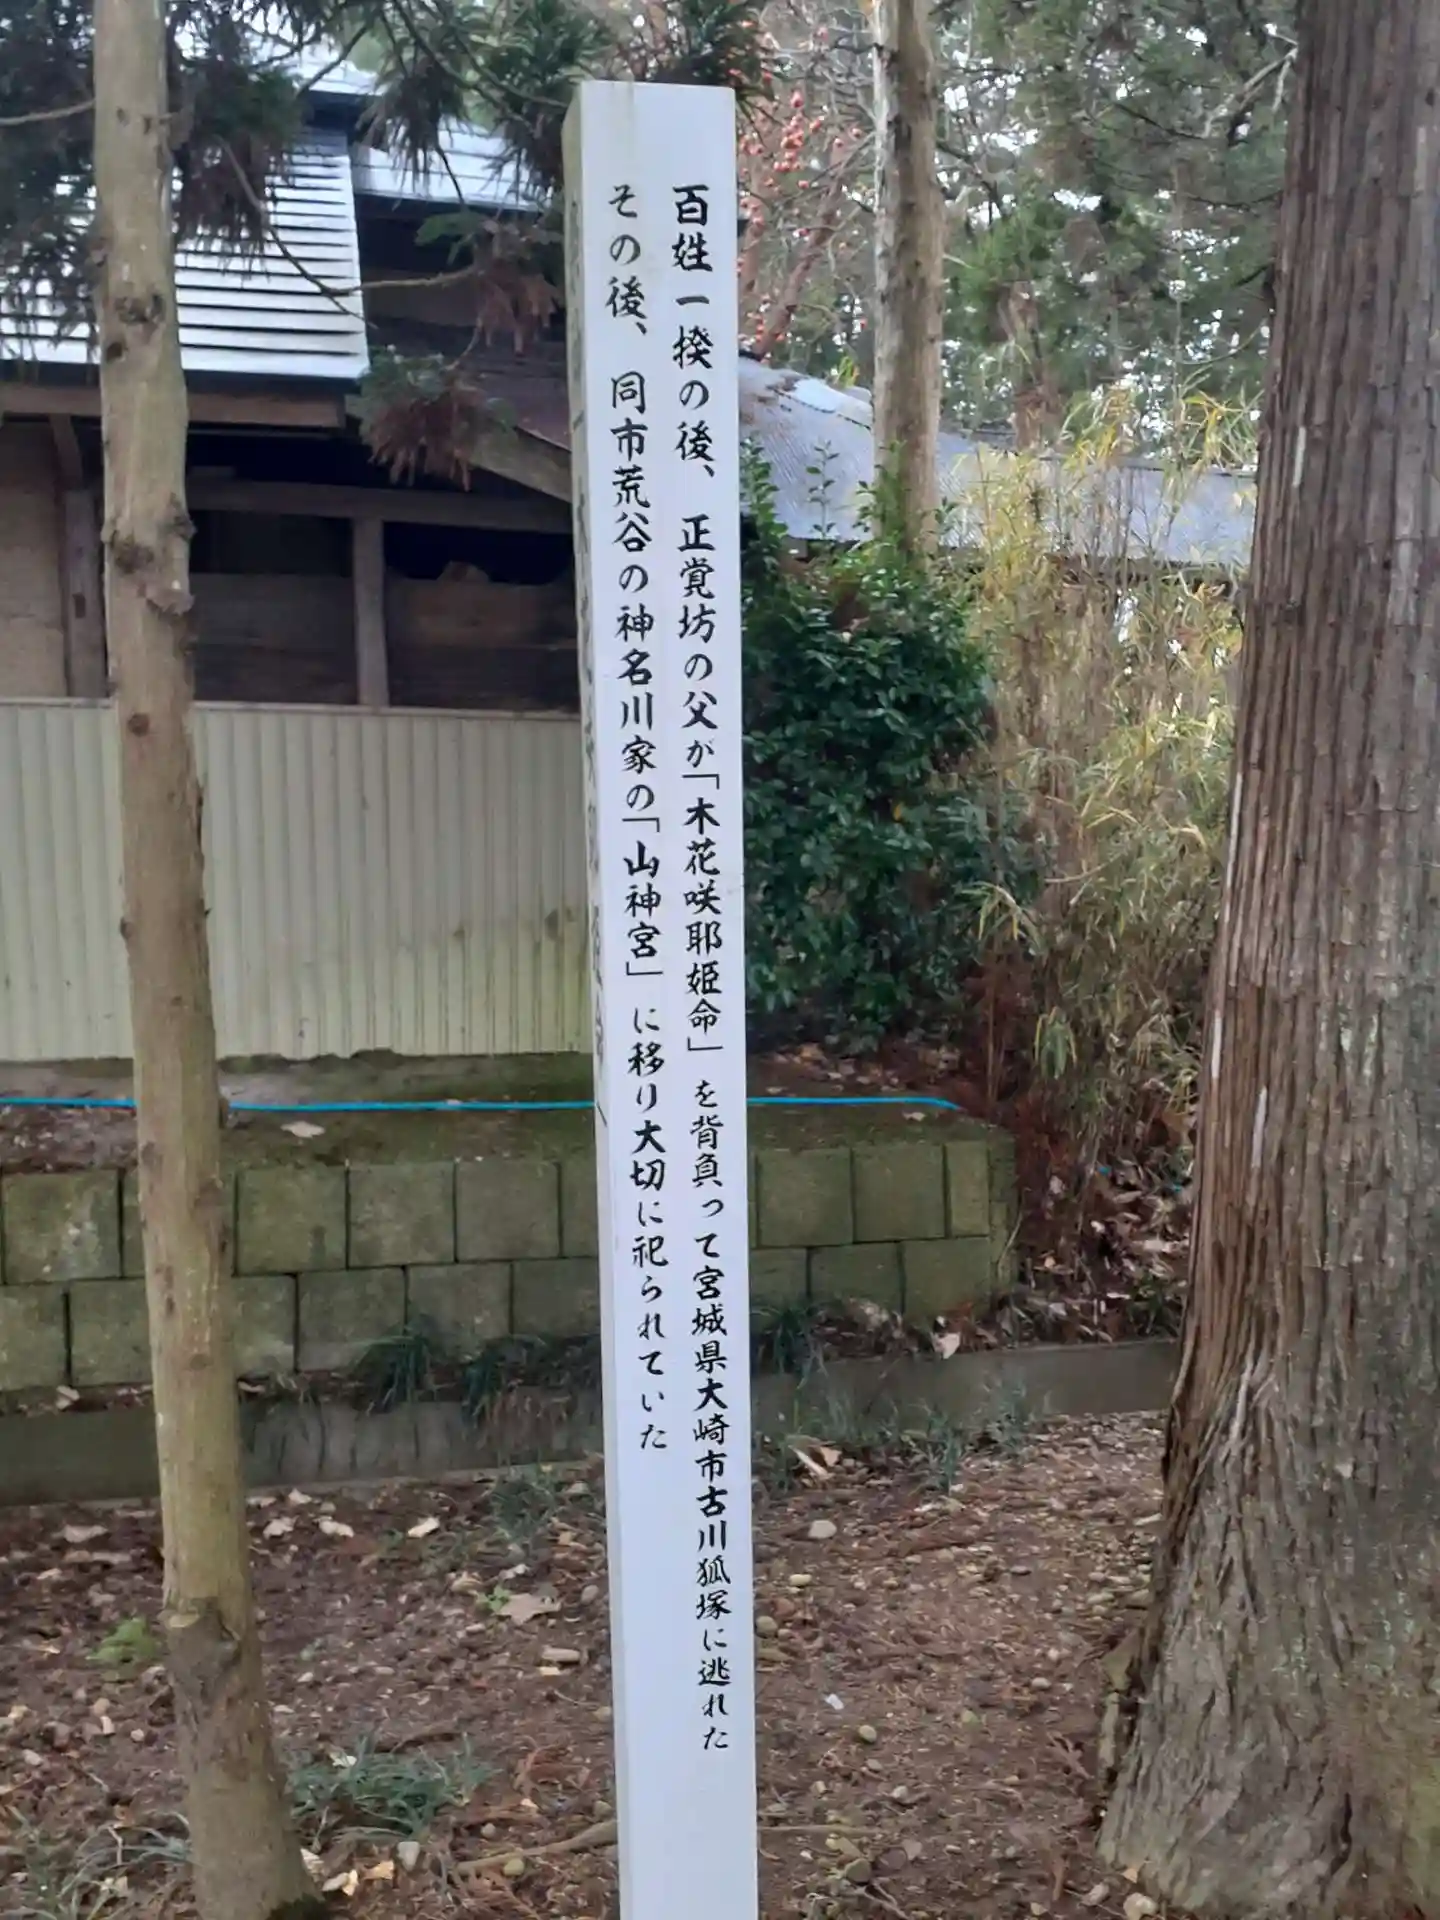 百姓一揆の後、正覚坊の父が「木花咲耶姫命」を背負って宮城県大崎市古川狐塚に逃れた
その後、同市荒谷の神名川家の「山神宮」に移り大切に祀られていた